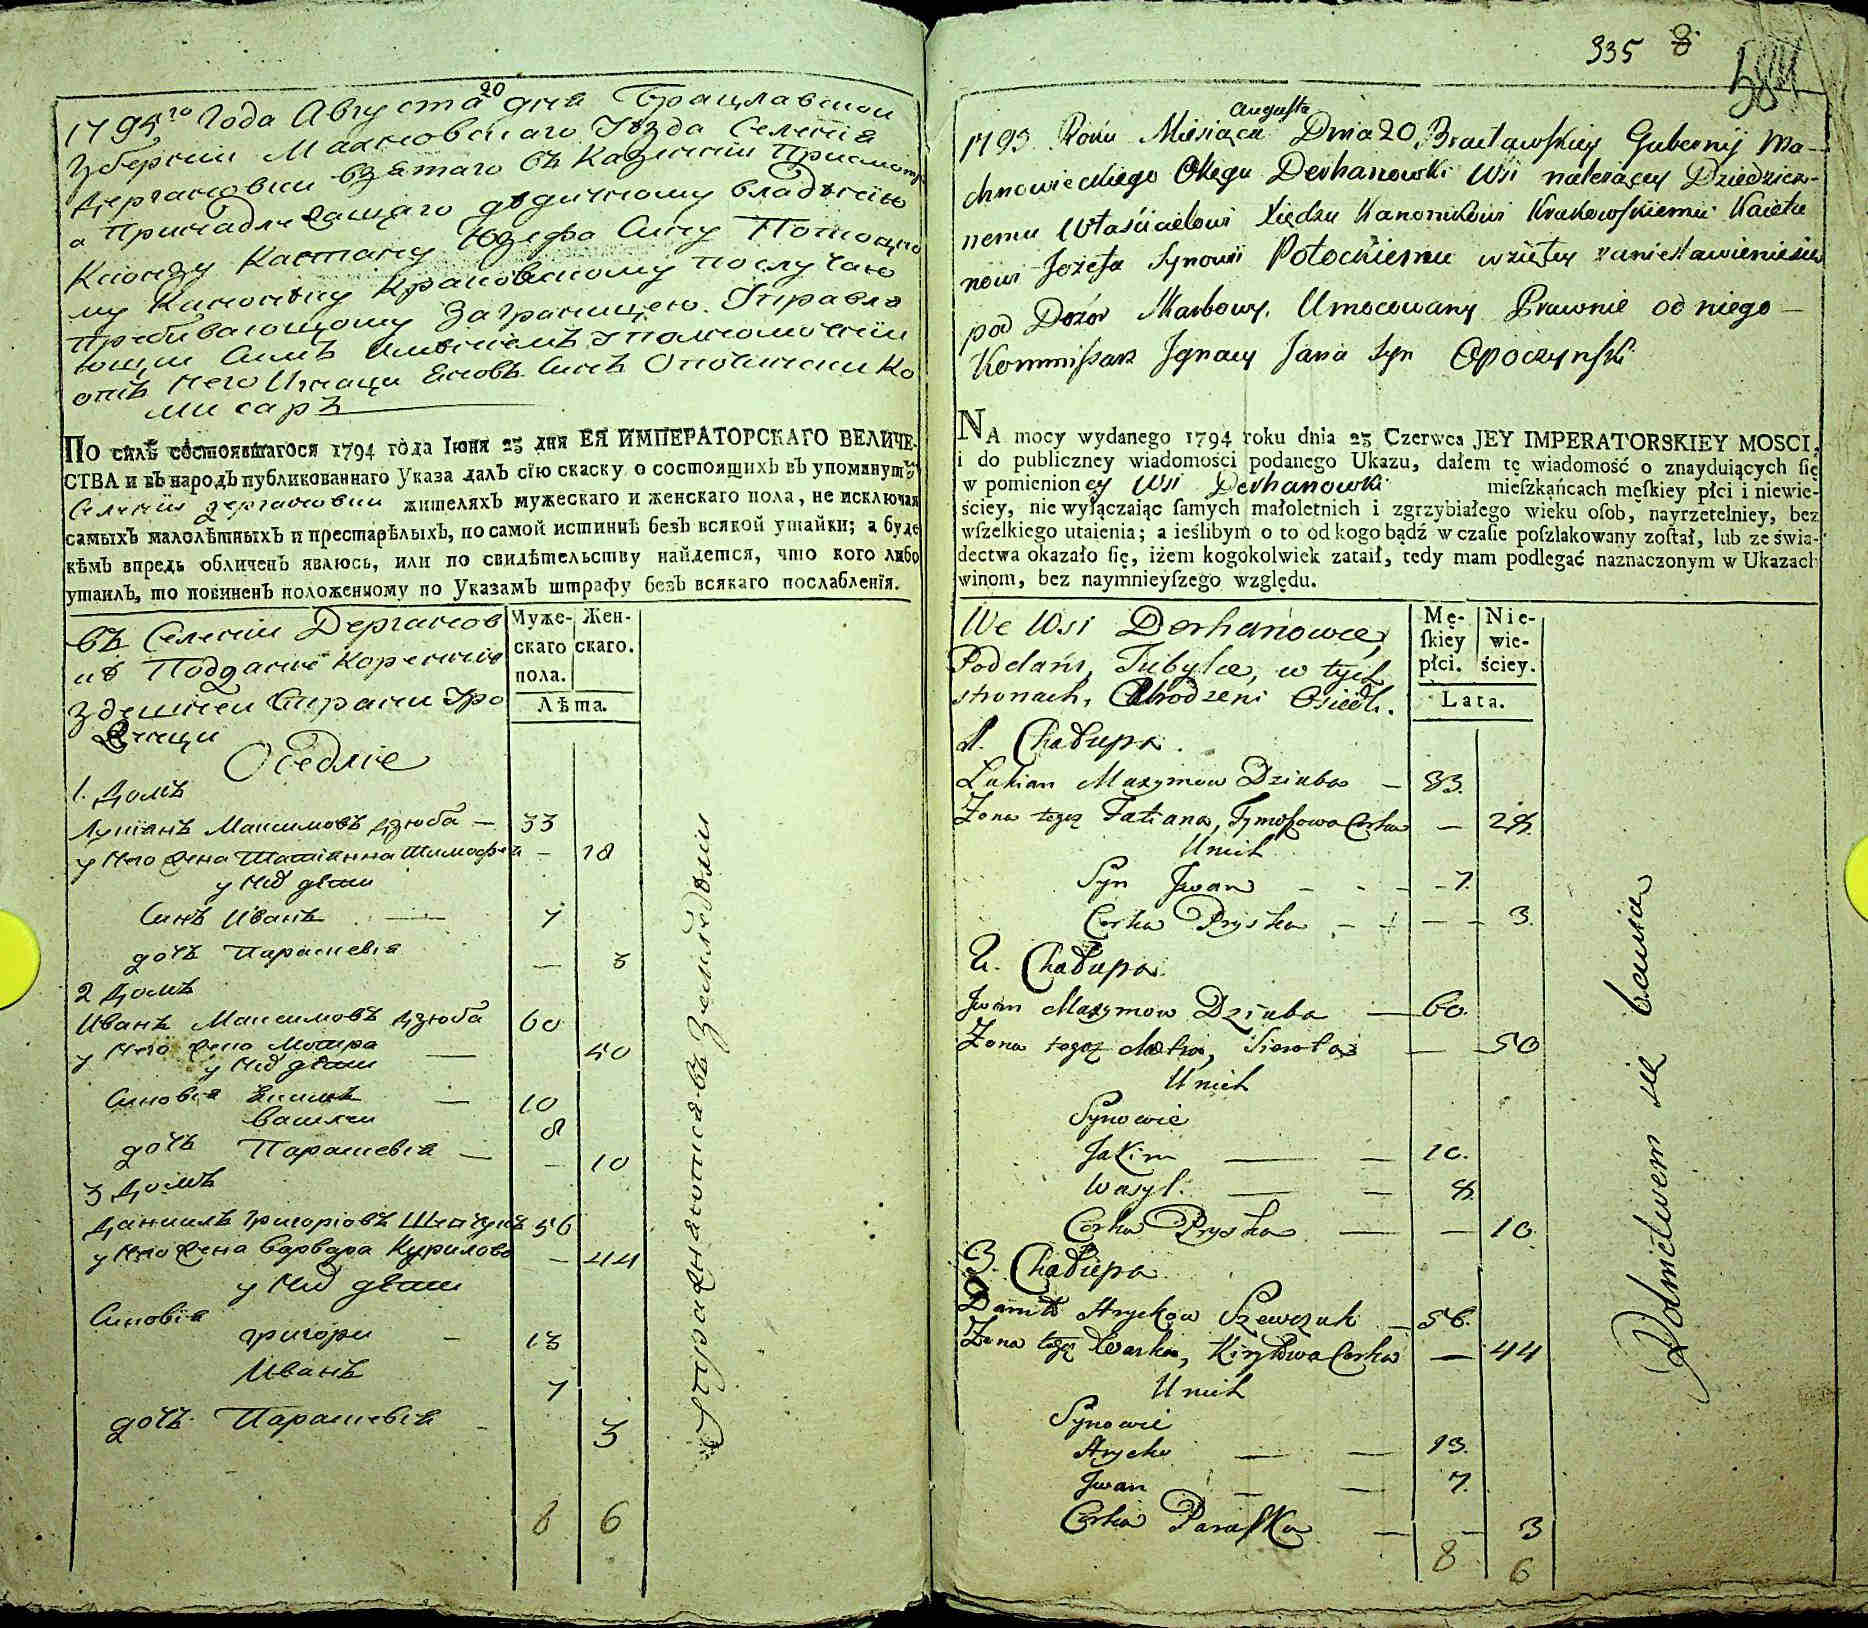 1795го Года Августа 20 дня Брацлавской
Губернии Махновскаго Уезда Селения
Дергановки взятаго въ Казенный Присмотръ
а Принадлежащаго дедичному владению
Ксіондзу Каетану Юзефа Сыну Потоцко
му Канонику Краковскому по случаю
пребывающому Заграницею. Управля
ющий Симъ имениемъ Уполномоченій
отъ Него Игнаци Яновъ Синъ Опочински Ко
мисаръ
По силѣ состоявшагося 1794 года Іюня 23 дня ЕЯ ИМПЕРАТОРСКАГО ВЕЛИЧЕ-
СТВА и въ народъ публикованнаго Указа далъ сїю скаску о состоящихъ въ упомянутѣ
Селении Дергановки жителяхъ мужескаго и женскаго пола, не исключая
самыхъ малолѣтныхъ и престарѣлыхъ, по самой истиннѣ безъ всякой утайки; а буде
кѣмъ впредь обличенъ явлюсь, или по свидѣтельству найдется, что кого либо
утаилъ, то повиненъ положенному по Указамъ штрафу безъ всякаго послабленїя.
въ Селении Дерганов
ке Поддание Коренние
здешней Страни Уро
женци
Оседліе
Муже-
скаго
пола.
Жен-
скаго.
Лѣта.
1. Домъ
Лукіанъ Максимовъ Дзюба — 33
у Него Жена Татіянна Тимофе — 28
у Них дети
Синъ Иванъ — 7
дочъ Парасшевія — 3
2 Домъ
Иванъ Максимовъ Дзюба 60
у Него Жена Мотра — 50
у Них дети
Синовія Якимъ — 10
Василъ 8
дочъ Парасшевія — 10
3 Домъ
Даниилъ Григоріовъ Шевчукъ 56
у Него Жена Варвара Курилова — 44
у Них дети
Синовія
Григори — 13
Иванъ 7
дочъ Парасшевія — 3
8 6
Упражняютися въ Земледелии
335 8
584
1795 Roku Miesiąca Augusta Dnia 20 Bracławskiey Gubernij Ma-
chnowieckiego Okęgu Derhanowki Wsi należącey Dziedzicz-
nemu Właścicielowi Xiędzu Kanonikowi Krakowskiemu Kaieta
nowi Jozefa Synowi Potockiemu wziętey
pod Dozór Skarbowy. Umocowany Prawnie od niego —
Kommissarz Jgnacy Jana Syn Opoczynski
NA mocy wydanego 1794 roku dnia 23 Czerwca JEY IMPERATORSKIEY MOSCI,
i do publiczney wiadomości podanego Ukazu, dałem tę wiadomość o znayduiących ſię
w pomienioney Wsi Derhanowki mieſzkańcach męſkiey płci i niewie-
ściey, nie wyłączaiąc ſamych małoletnich i zgrzybiałego wieku oſob, nayrzetelniey, bez
wſzelkiego utaienia; a ieślibym o to od kogo bądź w czaſie poſzlakowany zoſtał, lub ze świa-
dectwa okazało ſię, iżem kogokolwiek zataił, tedy mam podlegać naznaczonym w Ukazach
winom, bez naymnieyſzego względu.
We Wsi Derhanowce,
Poddani, Tubylce, w tych
stronach, Urodzeni Osiedli.
Mę-
ſkiey
płci.
Nie-
wie-
ściey.
Lata.
1. Chałupa.
Lukian Maxymow Dziuba — 33.
Zona tegoż Tatiana, Tymoſzowa Corka — 28.
U nich
Syn Jwan — 7.
Corka Pryska — 3.
2. Chałupa.
Jwan Maxymow Dziuba — 60.
Zona tegoż Motra, Sierota — 50
U nich
Synowie
Jakim — 10.
Wasyl. — 8.
Corka Pryska — 10.
3. Chałupa.
Daniło Hryckow Szewczuk — 56.
Zona tegoż Warka, Kiryłowa Corka — 44
U nich
Synowie
Hrycko — 13.
Jwan — 7.
Corka Paraſka — 3
8 6
Rolnictwem się bawia